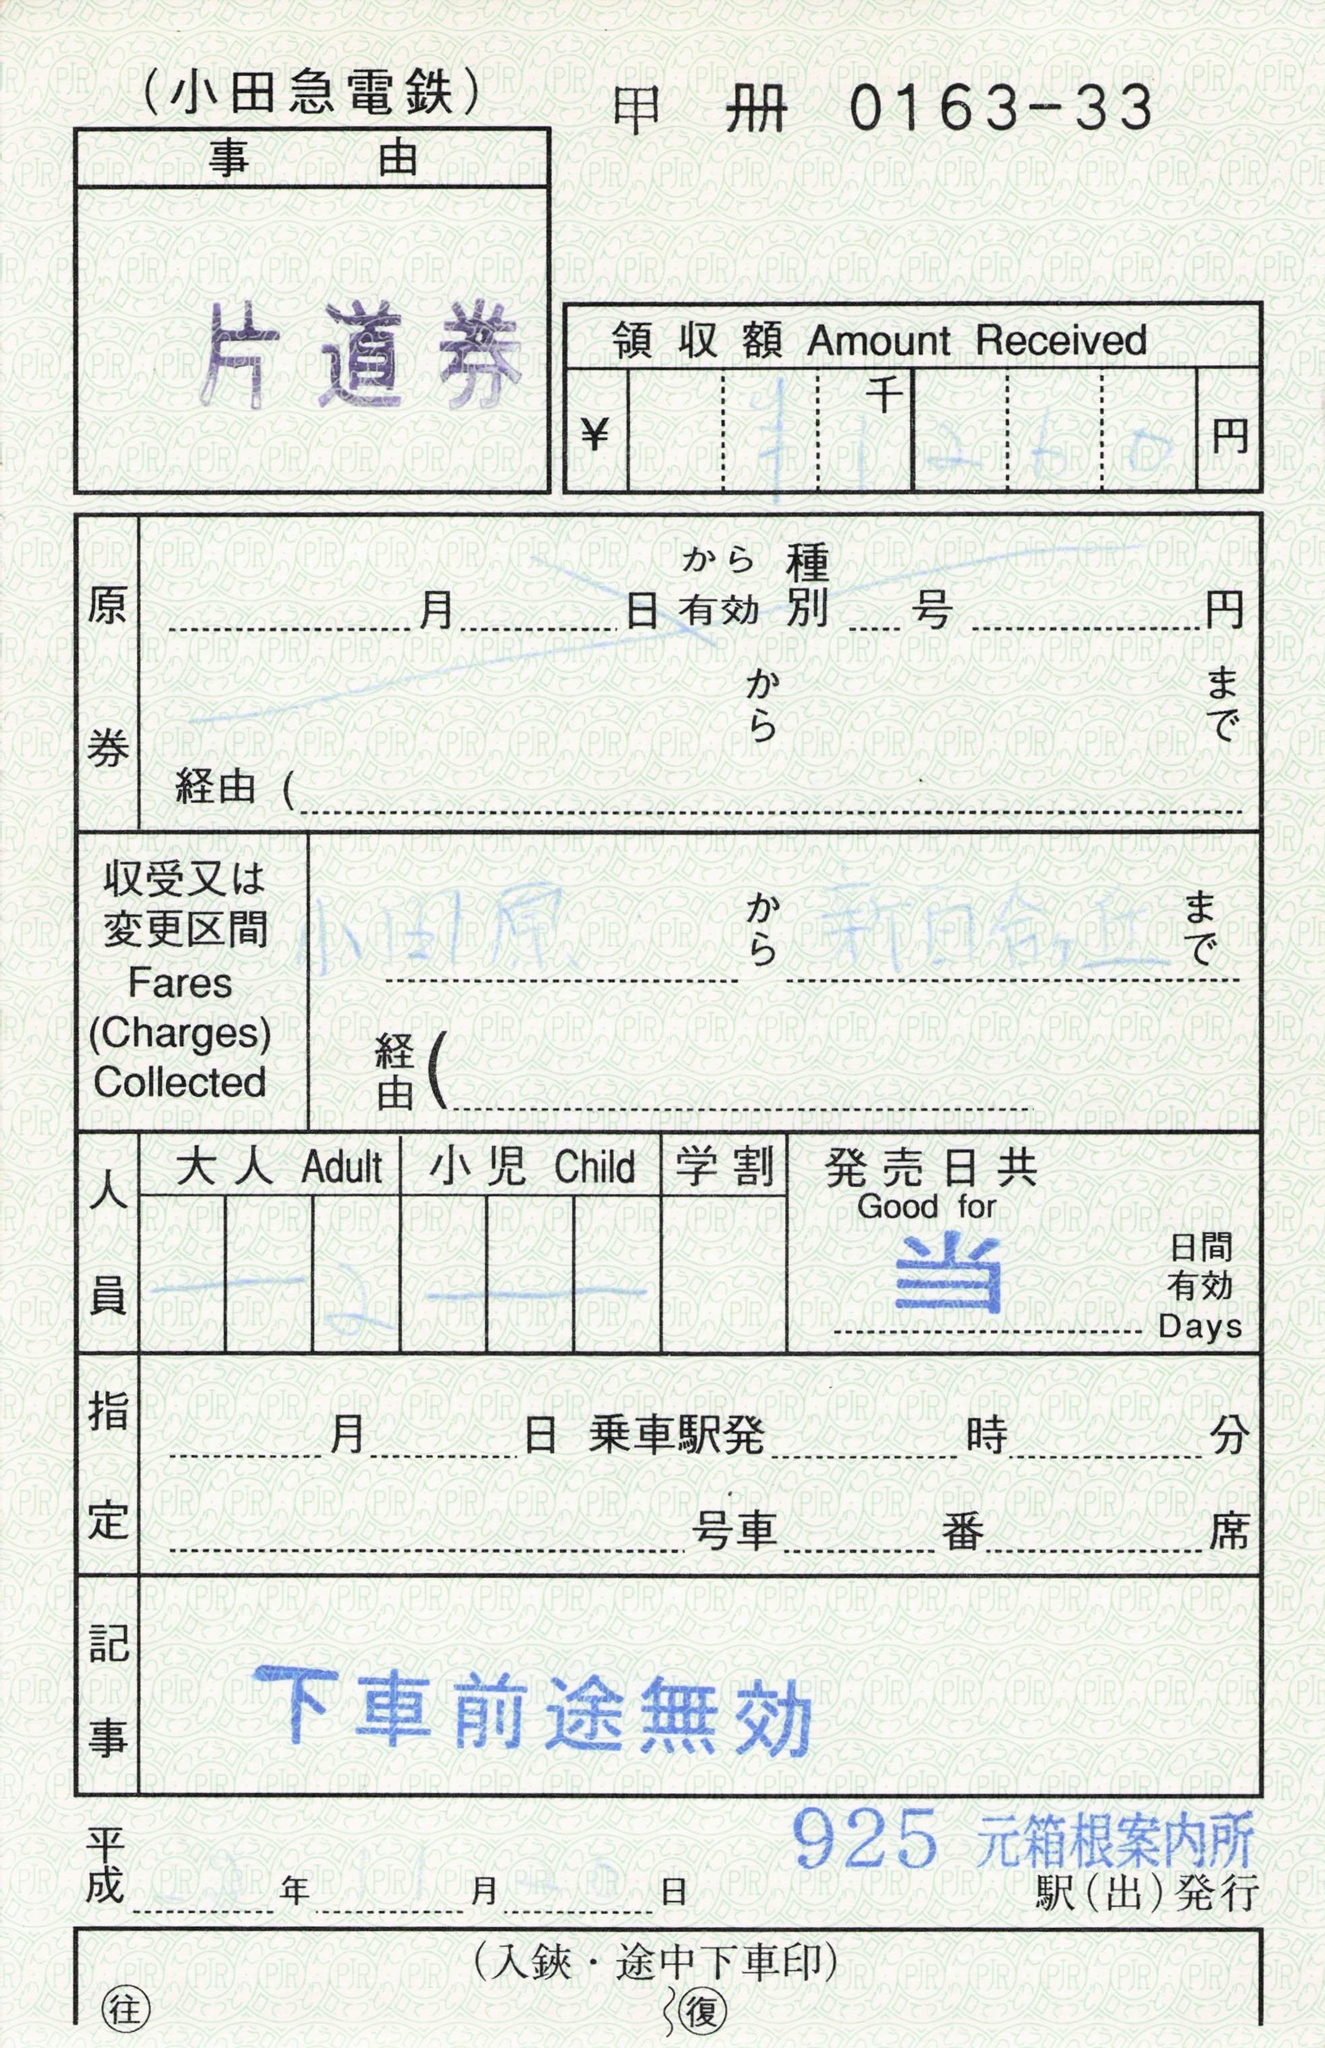 (小田急電鉄)
甲 冊 0163-33
事由
片道券
領収額 Amount Received
¥ 千 円
¥1260
原券
月 日 から有効 種別 号 円
から まで
経由 (
収受又は
変更区間
Fares
(Charges)
Collected
小田原 から まで
経由 (
人員
大人 Adult 小児 Child 学割
2
発売日共
Good for
当
日間
有効
Days
指定
月 日 乗車駅発 時 分
号車 番 席
記事
下車前途無効
925 元箱根案内所
平成 年 月 日 駅(出)発行
(入鋏・途中下車印)
往 復